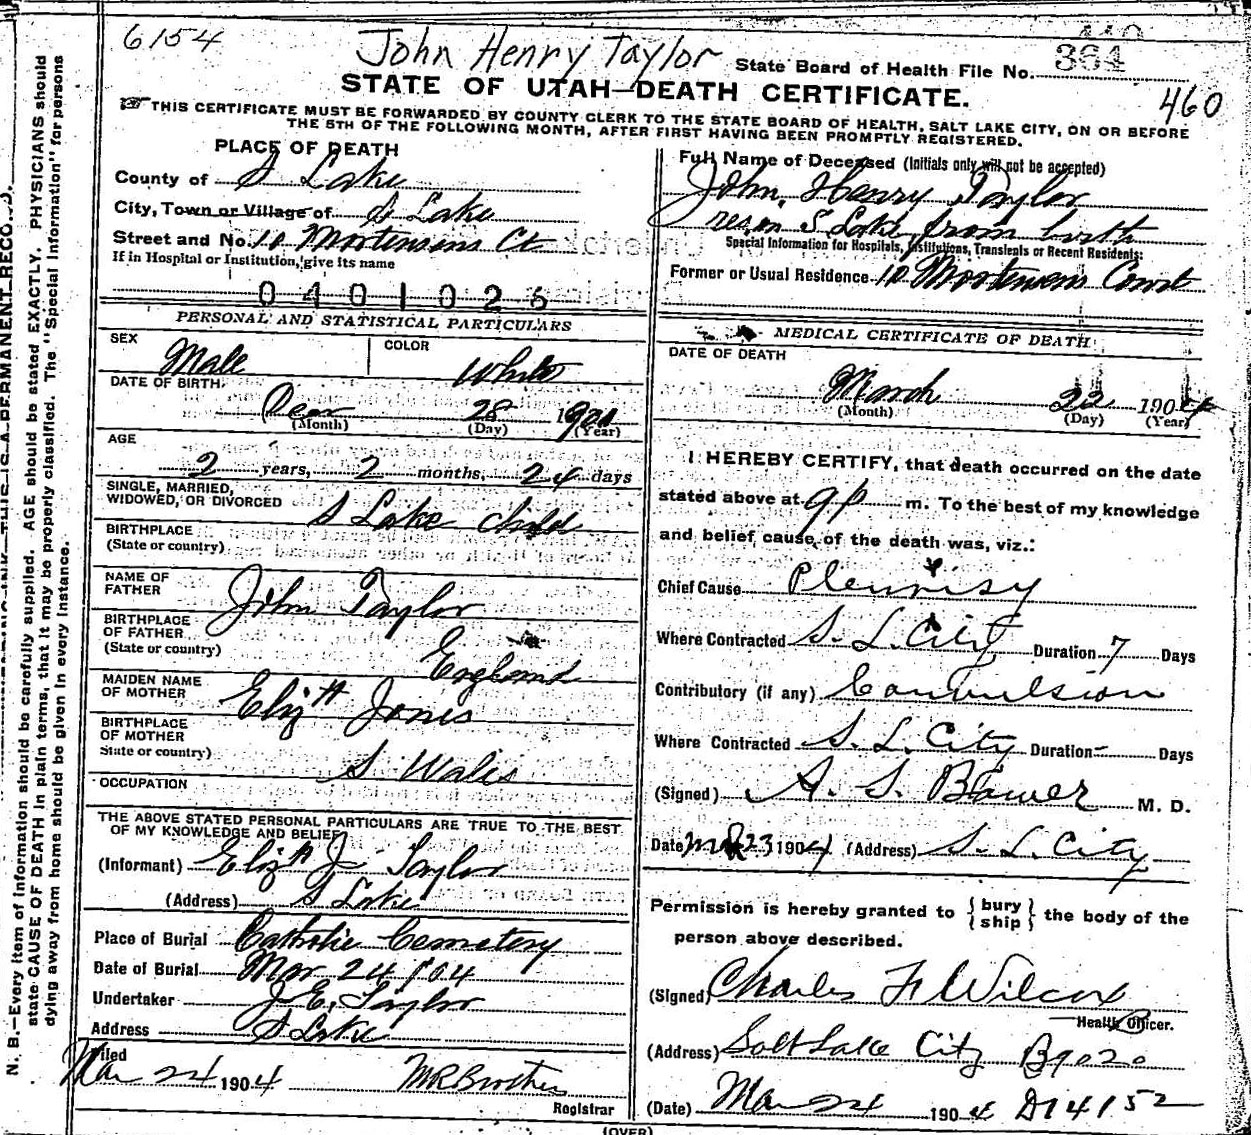 6154
John Henry Taylor
State Board of Health File No. 364
440
460
STATE OF UTAH—DEATH CERTIFICATE.
THIS CERTIFICATE MUST BE FORWARDED BY COUNTY CLERK TO THE STATE BOARD OF HEALTH, SALT LAKE CITY, ON OR BEFORE
THE 5TH OF THE FOLLOWING MONTH, AFTER FIRST HAVING BEEN PROMPTLY REGISTERED.
PLACE OF DEATH
County of S Lake
City, Town or Village of S Lake
Street and No. 10 Mortensens Ct
If in Hospital or Institution, give its name
0401026
PERSONAL AND STATISTICAL PARTICULARS
SEX Male
COLOR White
DATE OF BIRTH
28
(Month) (Day) (Year)
AGE
2 years, 2 months, 24 days
SINGLE, MARRIED,
WIDOWED, OR DIVORCED
S Lake child
BIRTHPLACE
(State or country)
NAME OF
FATHER
John Taylor
BIRTHPLACE
OF FATHER
(State or country)
England
MAIDEN NAME
OF MOTHER
Elizth Jones
BIRTHPLACE
OF MOTHER
State or country)
S Wales
OCCUPATION
THE ABOVE STATED PERSONAL PARTICULARS ARE TRUE TO THE BEST
OF MY KNOWLEDGE AND BELIEF
(Informant) Elizth J Taylor
(Address) S Lake
Place of Burial Catholic Cemetery
Date of Burial Mar 24 1904
Undertaker J E. Taylor
Address S Lake
Filed
Mar 24 1904
Registrar
Full Name of Deceased (Initials only will not be accepted)
John Henry Taylor
res in S Lake from birth
Special Information for Hospitals, Institutions, Transients or Recent Residents:
Former or Usual Residence 10 Mortensens Court
MEDICAL CERTIFICATE OF DEATH
DATE OF DEATH
March 22 1904
(Month) (Day) (Year)
I HEREBY CERTIFY, that death occurred on the date
stated above at 9 p m. To the best of my knowledge
and belief cause of the death was, viz.:
Chief Cause Pleurisy
Where Contracted S. L. City Duration 7 Days
Contributory (if any) Convulsion
Where Contracted S. L. City Duration - Days
(Signed) A. S. Bower M. D.
Date Mar 23 1904 (Address) S. L. City
Permission is hereby granted to { bury
ship } the body of the
person above described.
(Signed) Charles F Wilcox
Health Officer.
(Address) Salt Lake City B9020
(Date) Mar 24 1904 D14152
(OVER)
N. B.—Every item of information should be carefully supplied. AGE should be stated EXACTLY. PHYSICIANS should
state CAUSE OF DEATH in plain terms, that it may be properly classified. The "Special Information" for persons
dying away from home should be given in every instance.
THIS IS A PERMANENT RECORD.